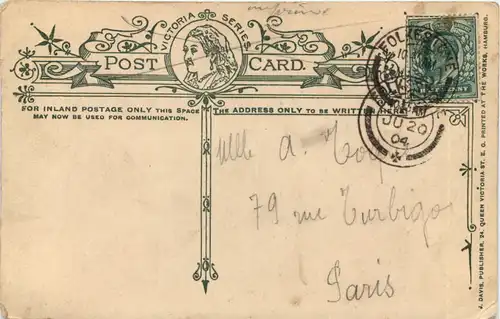 VICTORIA SERIES
POST CARD.
FOR INLAND POSTAGE ONLY THIS SPACE
MAY NOW BE USED FOR COMMUNICATION.
THE ADDRESS ONLY TO BE WRITTEN HERE.
FOLKESTONE
JU 20
04
Mlle A.
79 rue Turbigo
Paris
J. DAVIS, PUBLISHER, 24, QUEEN VICTORIA ST. E. C. PRINTED AT THE WORKS, HAMBURG.